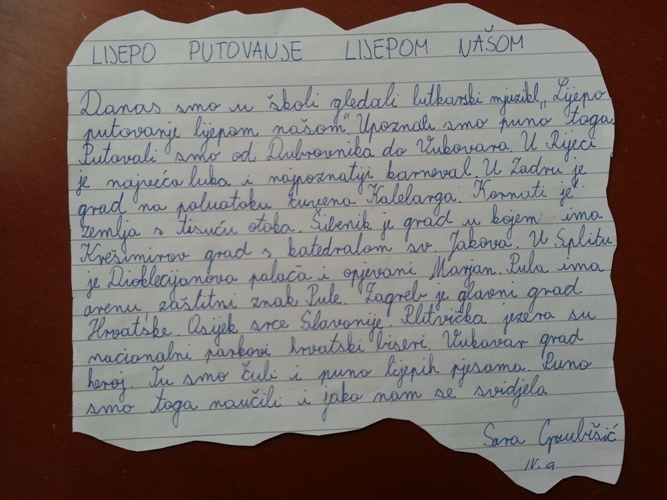 LIJEPO PUTOVANJE LIJEPOM NAŠOM
Danas smo u školi gledali lutkarski mjuzikl „Lijepo
putovanje lijepom našom". Upoznali smo puno toga.
Putovali smo od Dubrovnika do Vukovara. U Rijeci
je najveća luka i najpoznatiji karneval. U Zadru je
grad na poluotoku čuvena Kalelarga. Kornati je
zemlja s tisuću otoka. Šibenik je grad u kojem ima
Krešimirov grad s katedralom sv. Jakova. U Splitu
je Dioklecijanova palača i opjevani Marjan. Pula ima
arenu, zaštitni znak Pule. Zagreb je glavni grad
Hrvatske. Osijek srce Slavonije. Plitvička jezera su
nacionalni parkovi hrvatski biseri. Vukovar grad
heroj. Tu smo čuli i puno lijepih pjesama. Puno
smo toga naučili i jako nam se svidjela
Sara Grubišić
IV. a